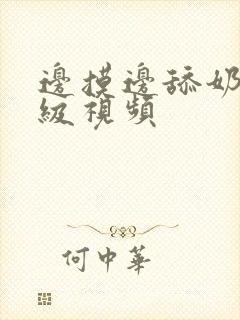 邊摸邊舔奶
級視頻
何中華